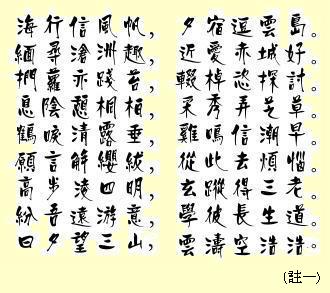 海行信風帆，夕宿逗雲島。
緬尋滄洲趣，近愛赤城好。
捫蘿亦踐苔，輟棹恣探討。
息陰憩桐栢，采秀弄芝草。
鶴唳清露垂，雞鳴信潮早。
願言解纓紱，從此去煩惱。
高步淩四明，玄蹤得三老。
紛吾遠游意，學彼長生道。
日夕望三山，雲濤空浩浩。
(註一)